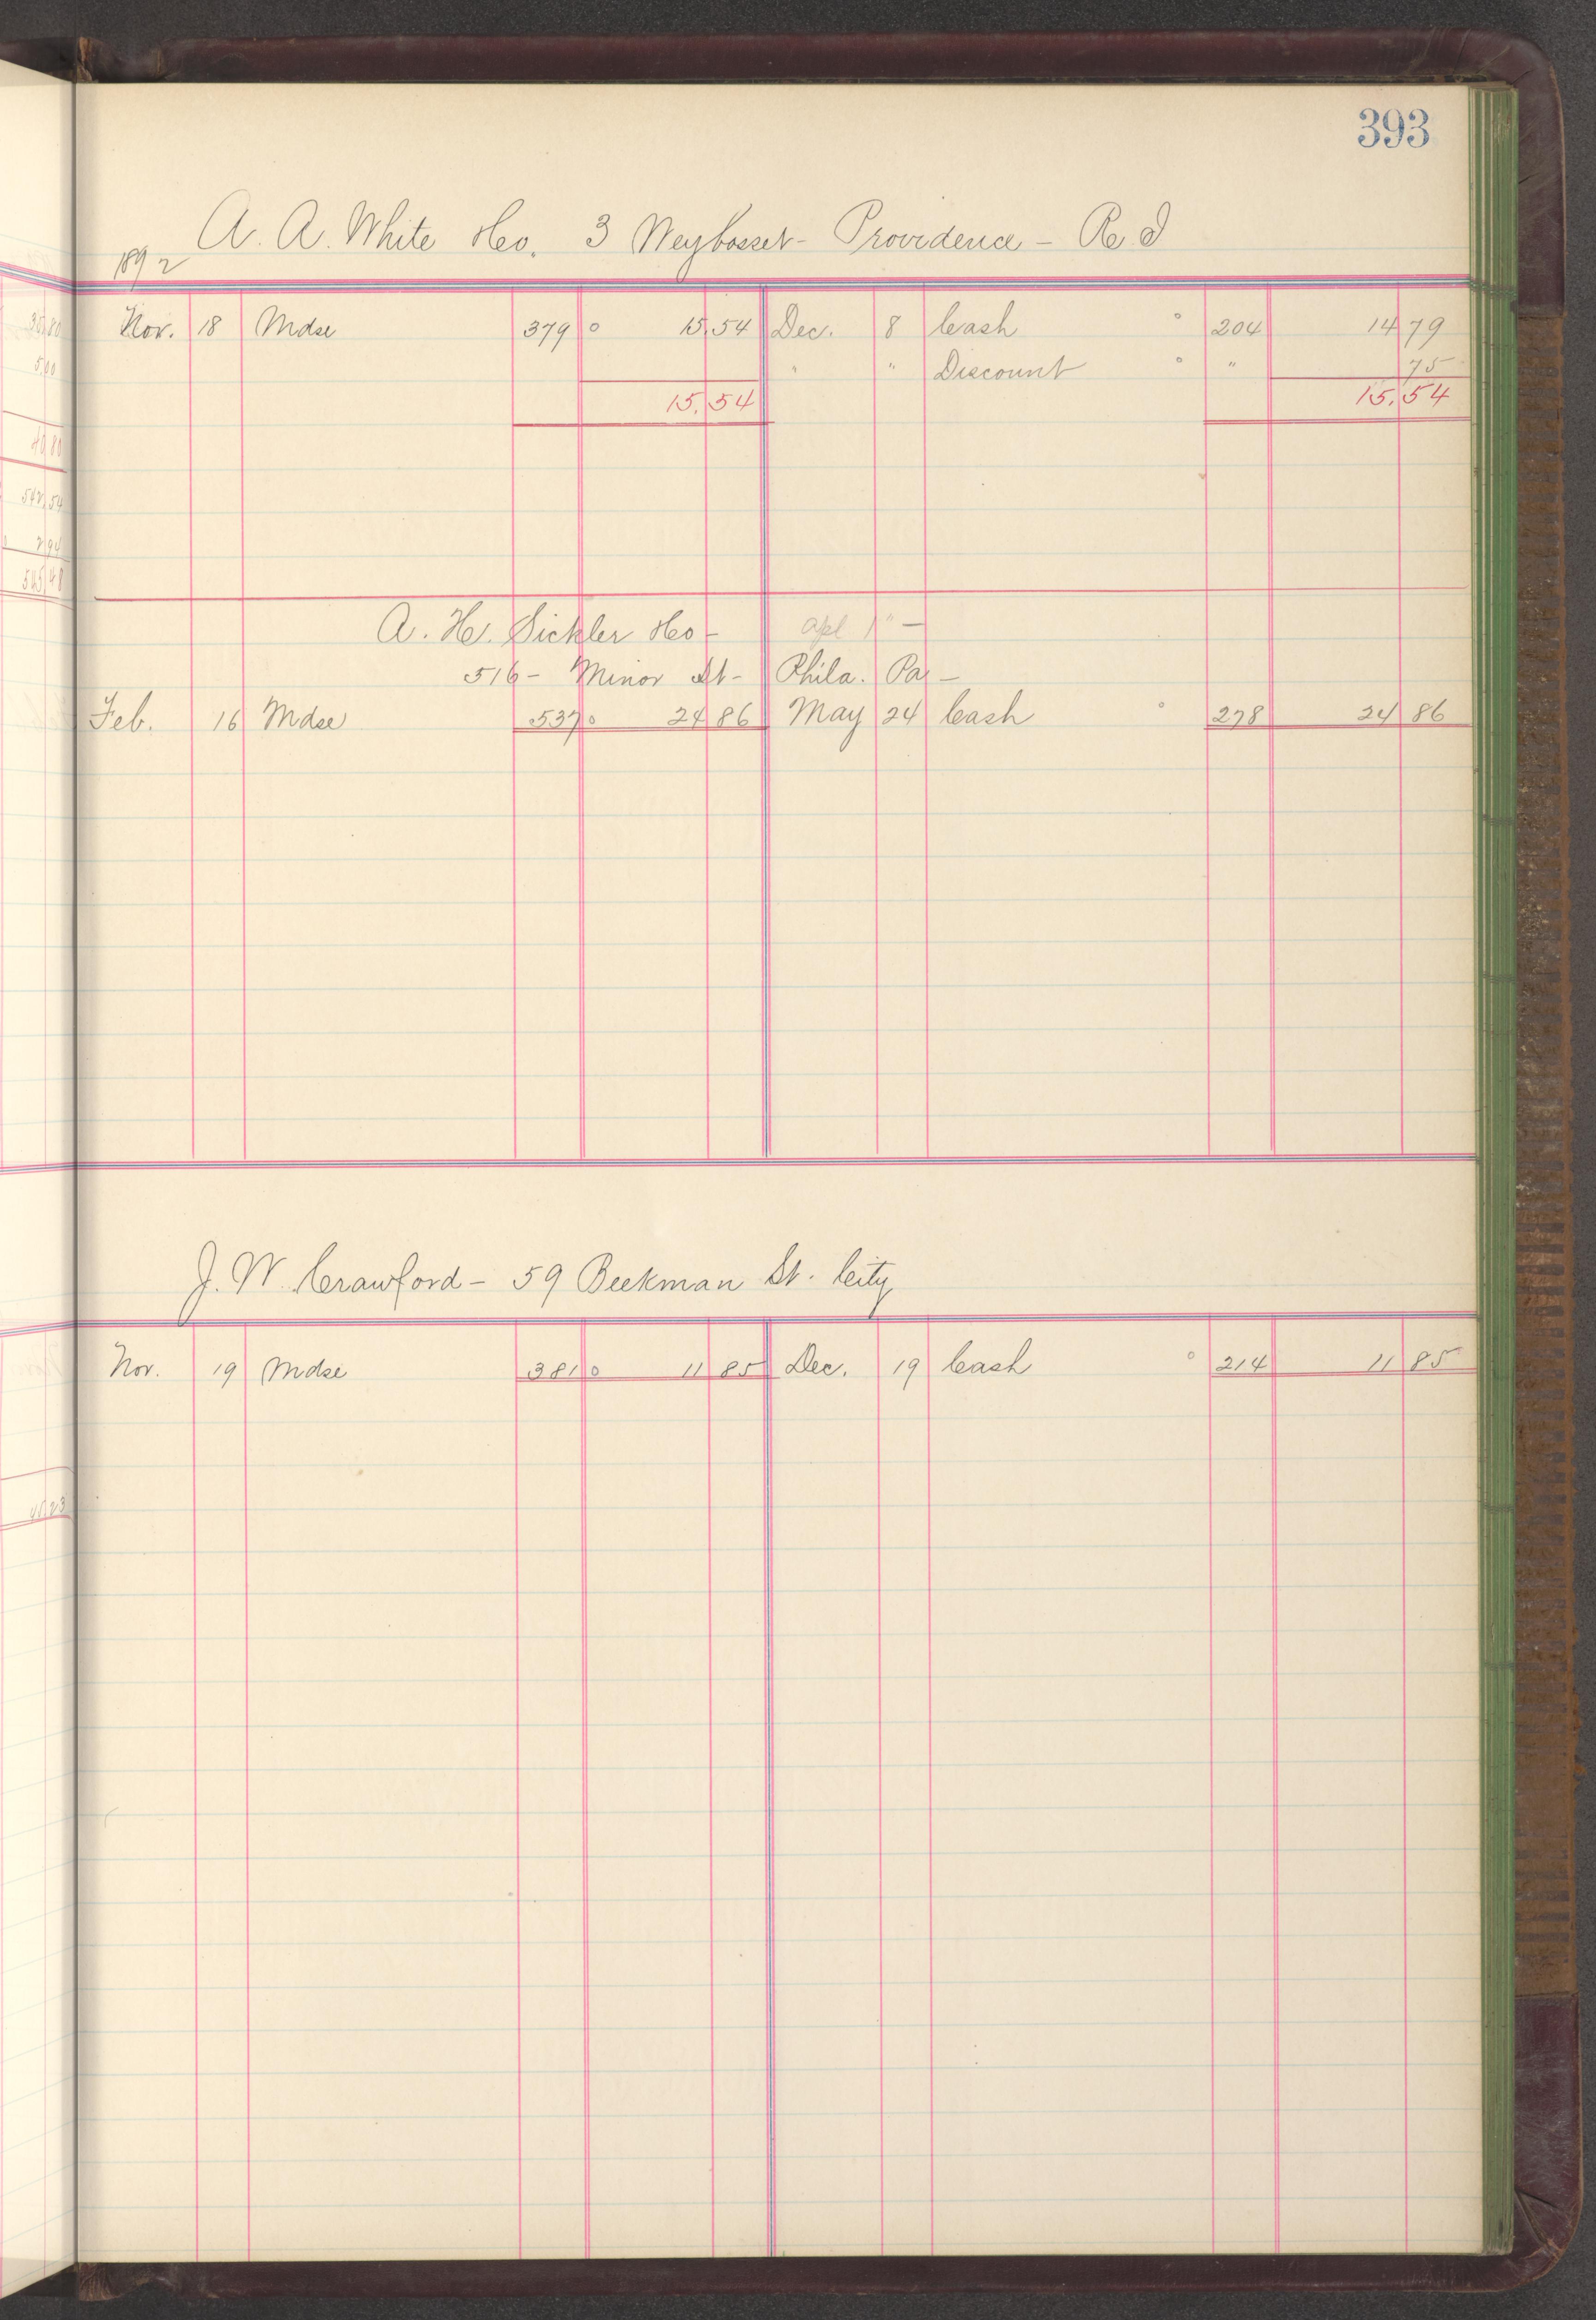 393
A. A. White & Co. 3 Weybosset - Providence - R I
1892
Nov. 18 Mdse 379 0 15.54 Dec. 8 Cash 204 14 79
" " Discount " 75
15.54 15.54
A. H. Sickler & Co - Apl 1" -
516 - Minor St - Phila. Pa -
Feb. 16 Mdse 537 0 24 86 May 24 Cash 278 24 86
J. W. Crawford - 59 Beekman St. City
Nov. 19 Mdse 381 0 11 85 Dec. 19 Cash 214 11 85